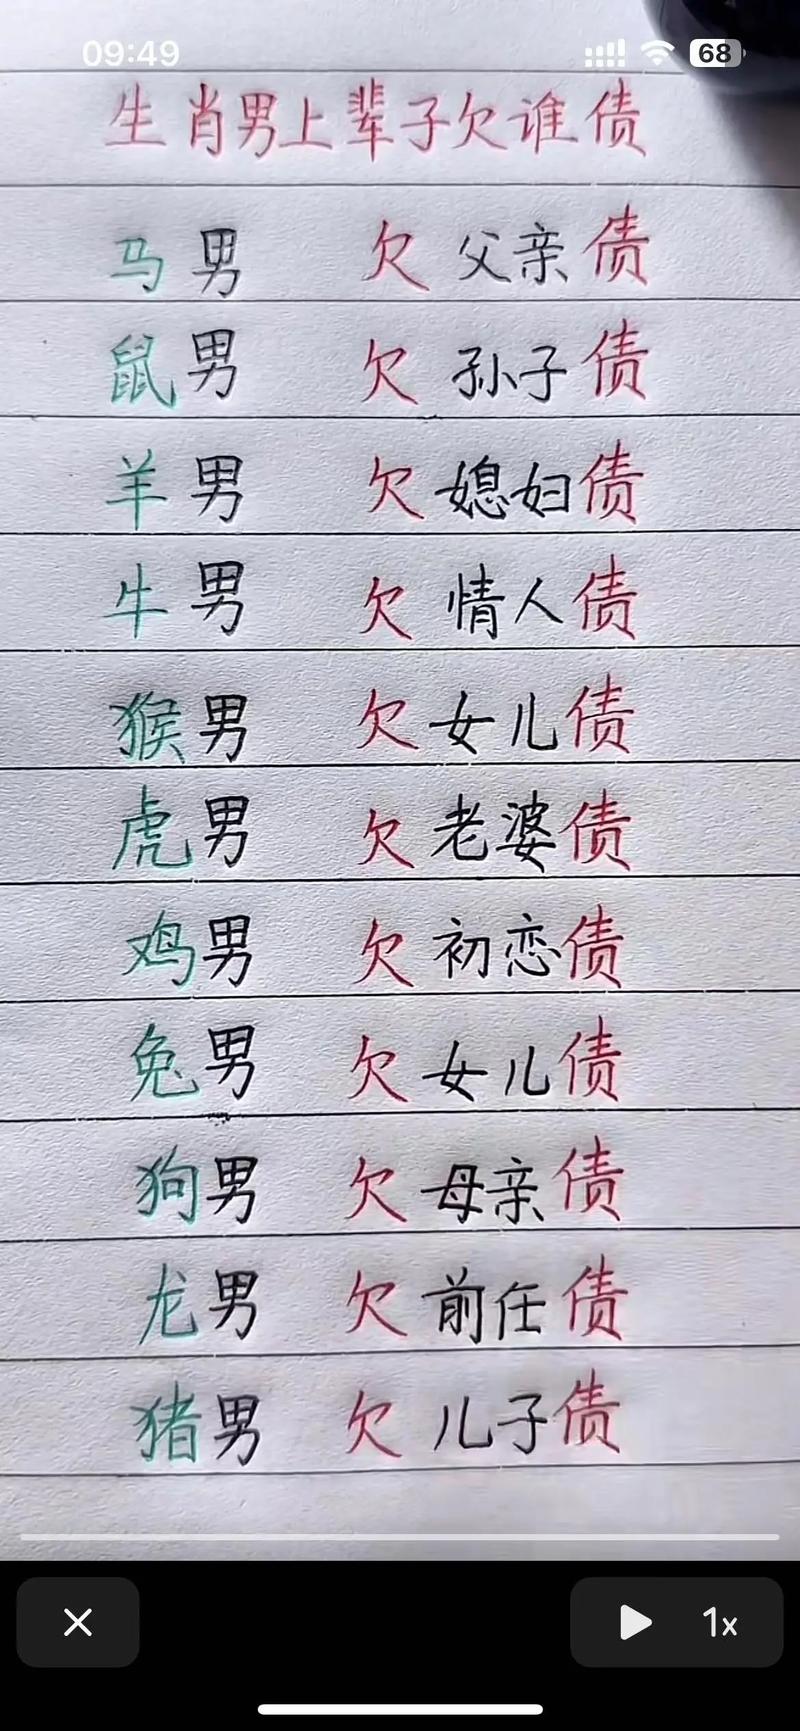 09:49
68
生肖男上辈子欠谁债
马男 欠父亲债
鼠男 欠孙子债
羊男 欠媳妇债
牛男 欠情人债
猴男 欠女儿债
虎男 欠老婆债
鸡男 欠初恋债
兔男 欠女儿债
狗男 欠母亲债
龙男 欠前任债
猪男 欠儿子债
1x